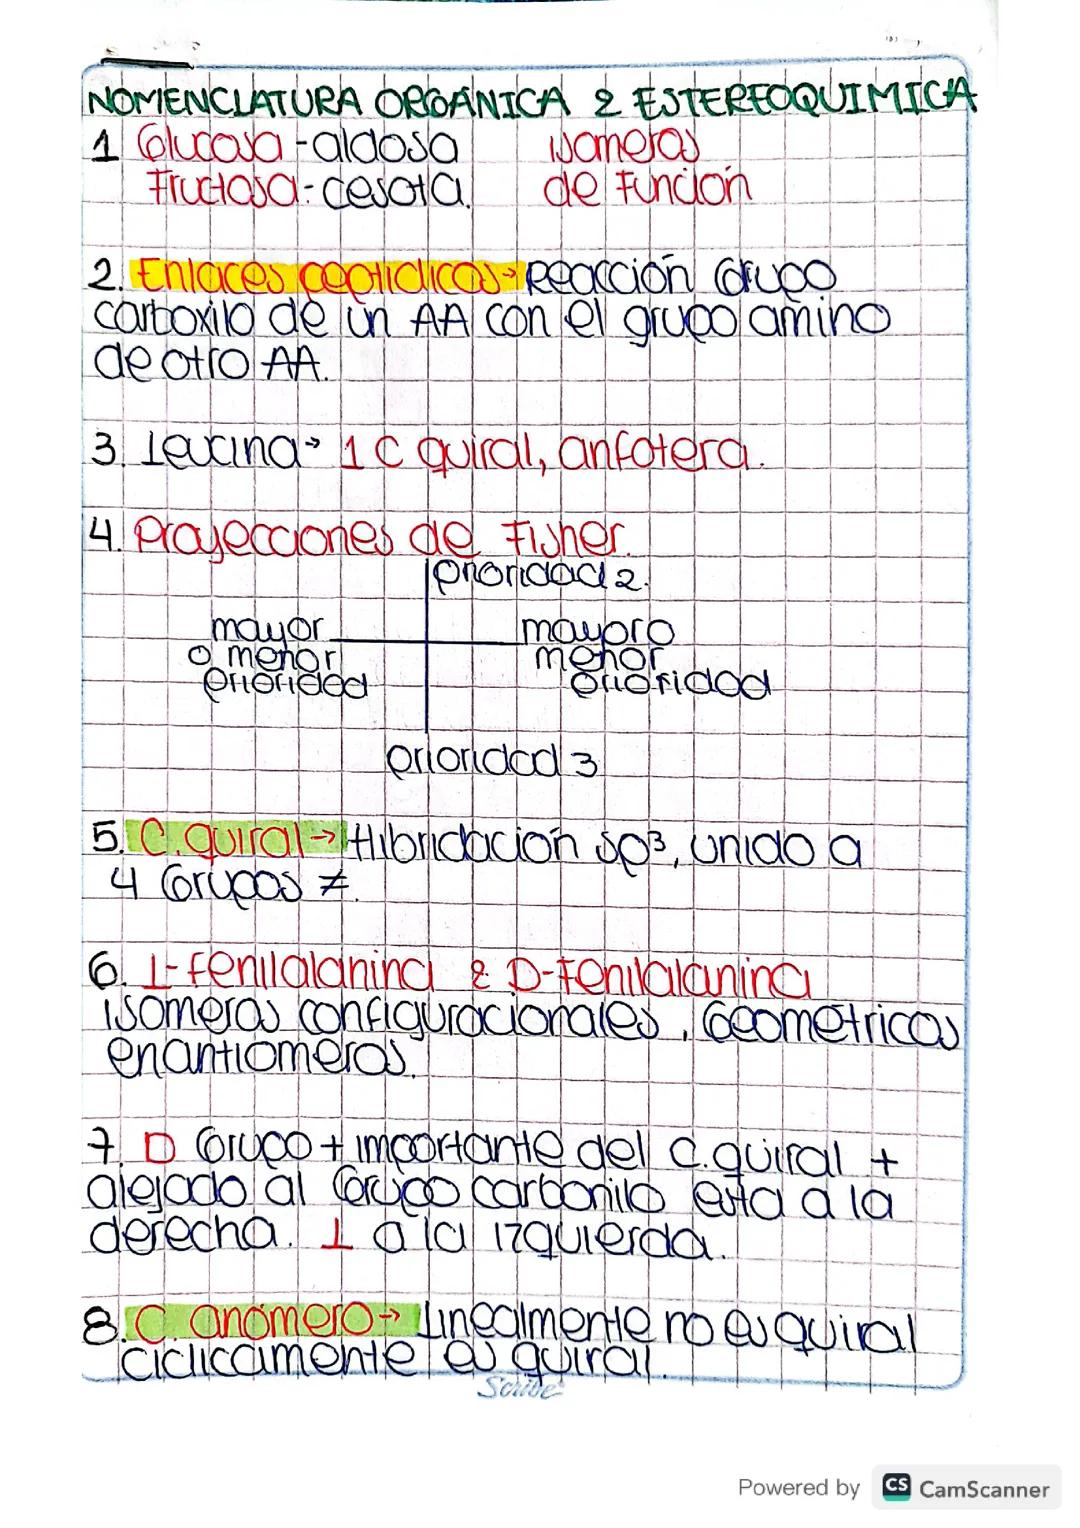 NOMENCLATURA ORGÁNICA & ESTEREOQUIMICA
1 Glucosa - aldosa isomeros
Fructosa - cesota. de Función
2. Enlaces peptidicos → Reacción Grupo
carboxilo de un AA con el grupo amino
de otro AA.
3. Leucina → 1 C quiral, anfotera.
4. Proyecciones de Fisher.
prioridad 2.
mayor mayor o
o menor menor
prioridad prioridad
prioridad 3
5. C. quiral → Hibridación sp³, unido a
4 Grupos ≠.
6. L-fenilalanina & D-Fenilalanina
isomeros configuracionales, Geometricos
enantiomeros.
7. D Grupo + importante del C. quiral +
alejado al Grupo carbonilo esta a la
derecha. L a la izquierda.
8. C. anomero → Linealmente no es quiral
ciclicamente es quiral.
Scribe
Powered by CS CamScanner